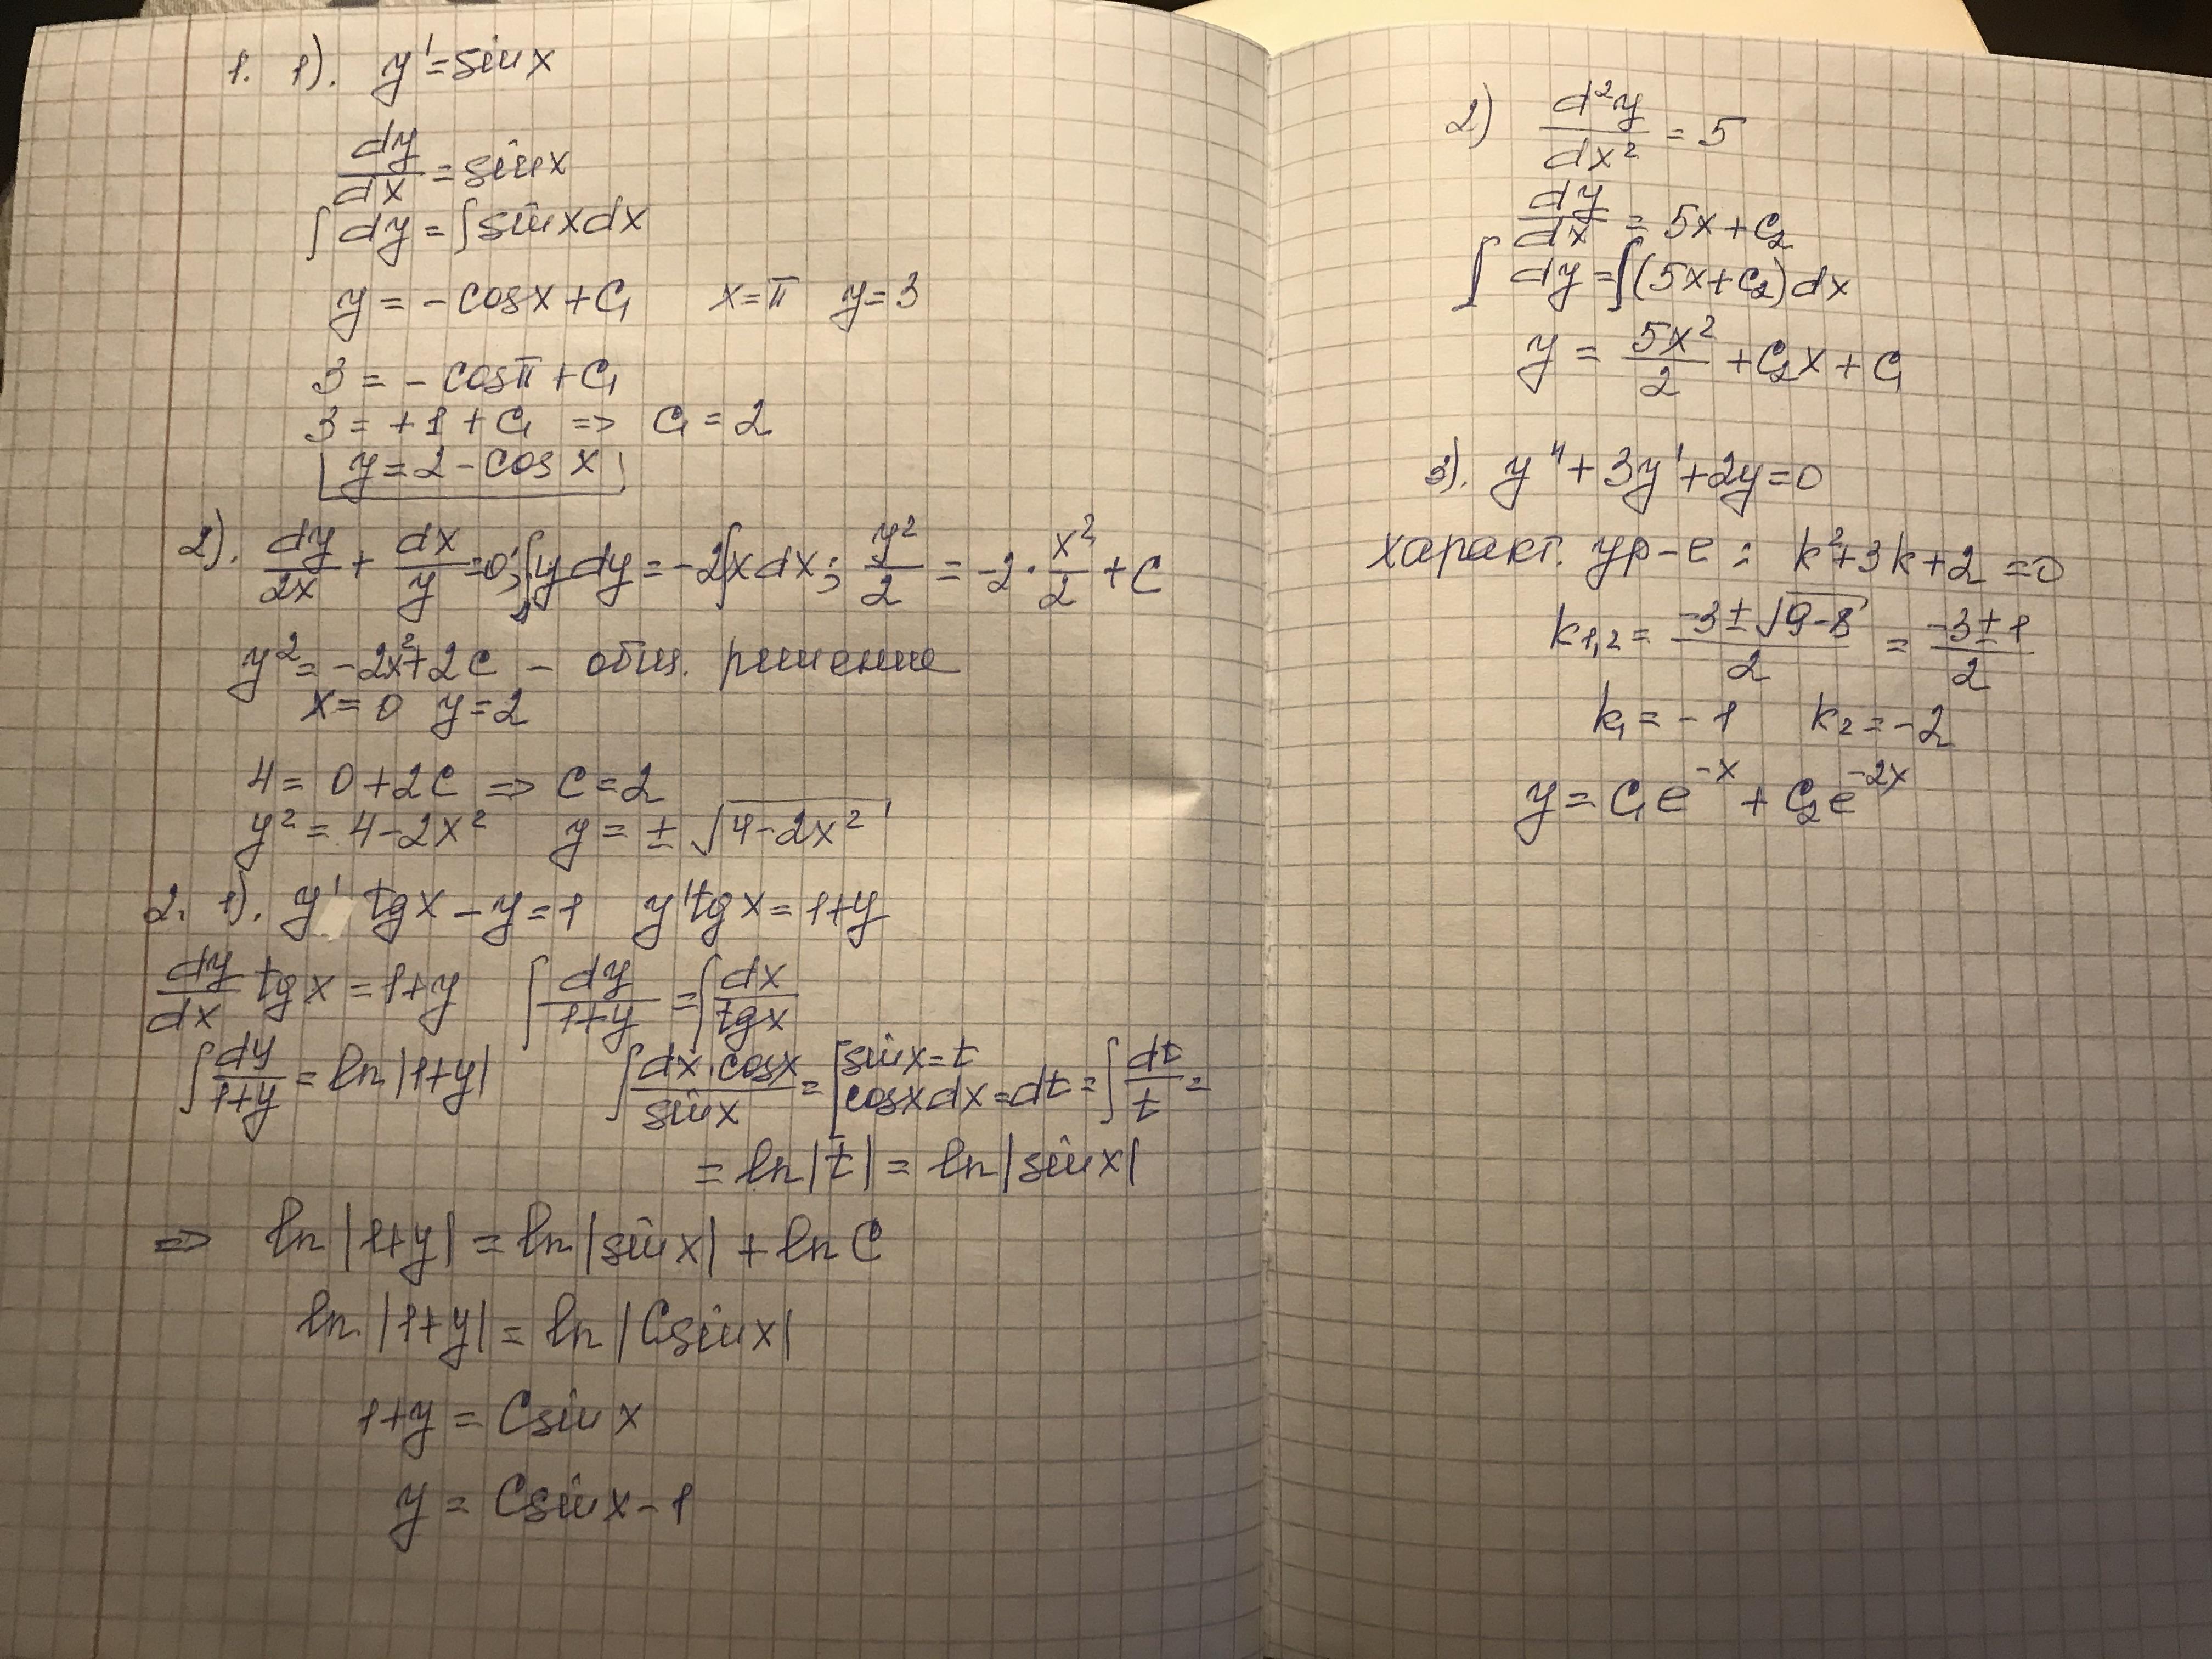 1. 1). y' = sin x
dy/dx = sin x
∫ dy = ∫ sin x dx
y = - cos x + C₁ x = π y = 3
3 = - cos π + C₁
3 = + 1 + C₁ => C₁ = 2
y = 2 - cos x
2). dy/2x + dx/y = 0; ∫ y dy = -2∫ x dx; y²/2 = -2 · x²/2 + C
y² = -2x² + 2C - общ. решение
x = 0 y = 2
4 = 0 + 2C => C = 2
y² = 4 - 2x² y = ± √(4 - 2x²)
2. 1). y' tg x - y = 1 y' tg x = 1 + y
dy/dx tg x = 1 + y ∫ dy/(1+y) = ∫ dx/tg x
∫ dy/(1+y) = ln |1+y| ∫ dx·cos x/sin x = [sin x = t cos x dx = dt = ∫ dt/t =
= ln |t| = ln |sin x|
=> ln |1+y| = ln |sin x| + ln C
ln |1+y| = ln |C sin x|
1 + y = C sin x
y = C sin x - 1
2) d²y/dx² = 5
dy/dx = 5x + C₂
∫ dy = ∫ (5x + C₂) dx
y = 5x²/2 + C₂x + C₁
3). y'' + 3y' + 2y = 0
характ. ур-е : k² + 3k + 2 = 0
k₁,₂ = (-3 ± √(9-8))/2 = (-3 ± 1)/2
k₁ = - 1 k₂ = - 2
y = C₁e⁻ˣ + C₂e⁻²ˣ